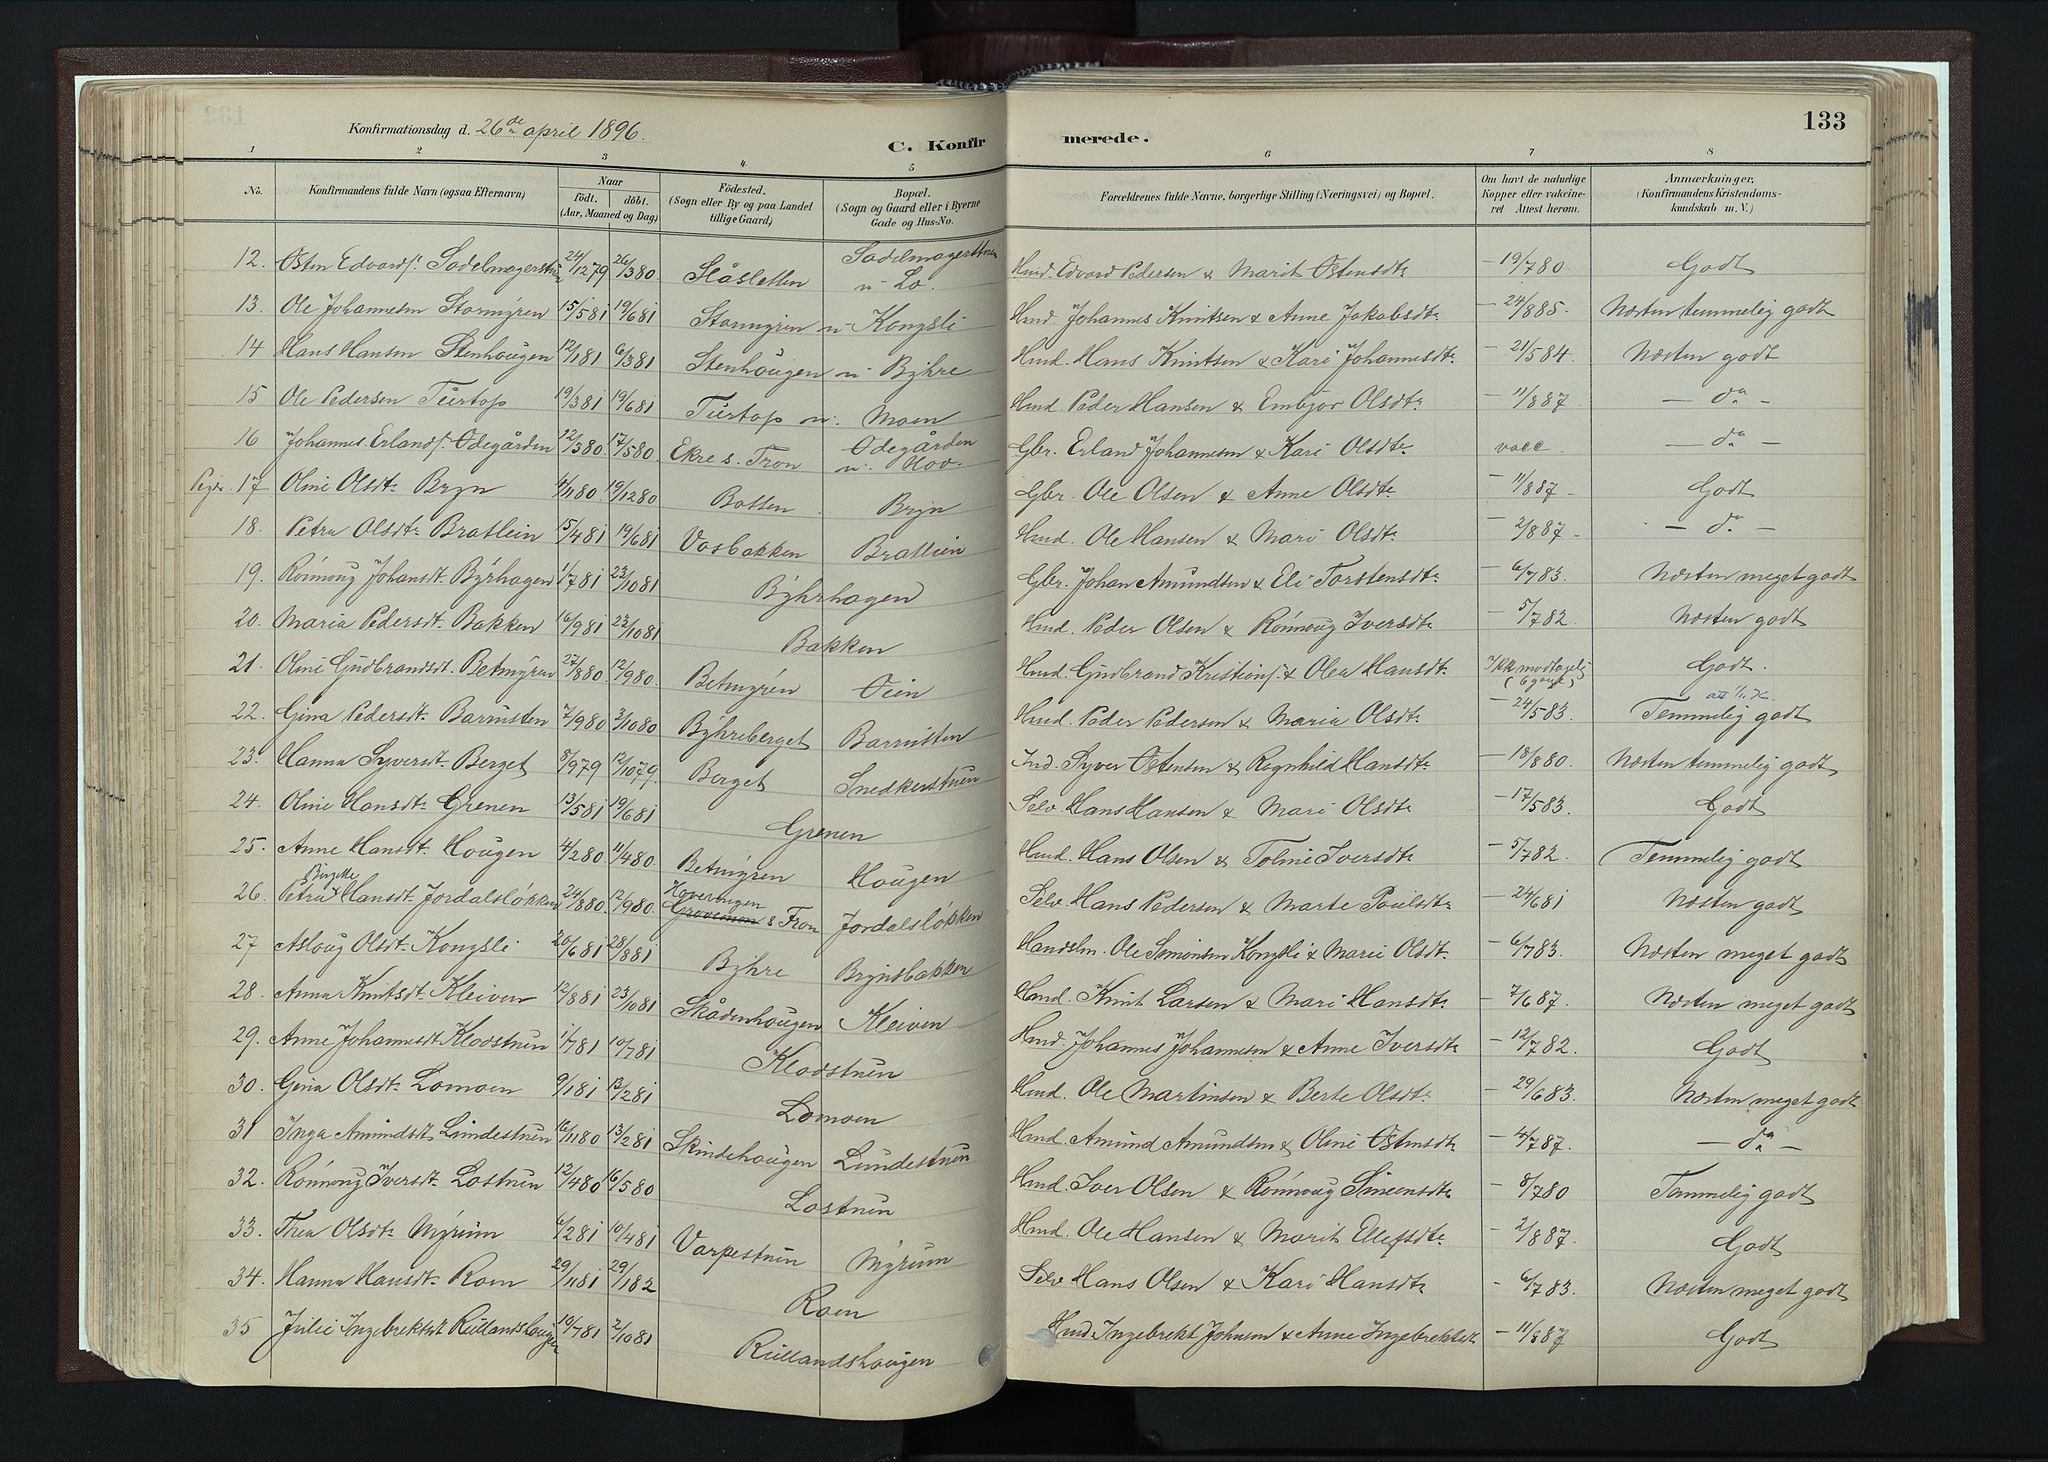 133
Konfirmationsdag d. 26de april 1896.
C. Konfirmerede.
1 2 3 4 5 6 7 8
No. Konfirmandens fulde Navn (ogsaa Efternavn) Naar födt. döbt. (Aar, Maaned og Dag) Födested. (Sogn eller By og paa Landet tillige Gaard) Bopæl. (Sogn og Gaard eller i Byerne Gade og Hus-No. Forældrenes fulde Navne, borgerlige Stilling (Næringsvei) og Bopæl. Om havt de naturlige Kopper eller vakcineret Attest herom. Anmærkninger, (Konfirmandens Kristendomskundskab m. V.)
12. Østen Edvards. Sadelmagerstuen 24/1279 26/380 Slåsletten Sadelmagerstuen u. Lo. Hmd. Edvard Pedersen & Marit Østensdtr - 19/780 Godt
13. Ole Johannesen Stormyren 15/581 19/681 Stormyren u. Kongsli Hmd. Johannes Knutsen & Anne Jakobsdtr - 24/885. Næsten temmelig godt
14 Hans Hansen Stenhougen 12/181 6/381 Stenhougen u. Byhre Hmd. Hans Knutsen & Kari Johannesdtr - 21/584. Næsten godt
15 Ole Pedersen Turtop 19/381 19/681 Turtop u. Moen Hmd. Peder Hansen & Embjør Olsdtr - 11/887. - do -
16 Johannes Erlands. Ødegården 12/380 17/580 Ekre s. Fron Ødegården u. Hov Gbr. Erland Johannesen & Kari Olsdtr vacc. - do -
Piger. 17 Oline Olsdtr Bryn 4/1180 19/1280 Botten Bryn Gbr. Ole Olsen & Anne Olsdtr - 11/887 - Godt
18. Petra Olsdtr Bratlein 15/481 19/681 Vosbakken Bratlien Hmd. Ole Hansen & Mari Olsdtr - 2/887 - - do -
19. Rønnoug Johansdt. Byrhagen 1/781 23/1081 Byhrhagen Gbr. Johan Amundsen & Eli Torstensdtr - 6/783. Næsten meget godt
20. Maria Pedersdt. Bakken 16/981 23/1081 Bakken Hmd. Peder Olsen & Rønnoug Iversdtr - 5/782. Næsten godt
21. Oline Gudbrandsdt. Betmyren 27/880 12/980 Betmyren Øien Hmd. Gudbrand Kristians. & Olea Hansdtr Ikke modtagelig (6 gange) Godt.
22. Gina Pedersdt. Barrusten 7/980 3/1080 Byhreberget Barrusten Hmd. Peder Pedersen & Maria Olsdtr - 24/583. Temmelig godt
23. Hanna Syversdt. Berget 8/979 12/1079. Berget Snedkerstuen Ind. Syver Østensen & Ragnhild Hansdtr - 18/880. Næsten temmelig godt
24. Oline Hansdtr Grenen 13/581 19/681 Grenen Selv. Hans Hansen & Mari Olsdtr - 17/583. Godt
25. Anne Hansdt. Hougen 4/280 11/480. Betmyren Hougen Hmd. Hans Olsen & Toline Iversdtr - 5/782. Temmelig godt
26. Petra Birgitte Hansdt. Jordalsløkken 24/880. 12/980. Hoveringen s. Fron Jordalsløkken Selv. Hans Pedersen & Marte Poulsdtr - 24/681 Næsten godt
27 Aslaug Olsdt. Kongsli 20/681 28/881 Byhre Brynsbakken Handelsm. Ole Simonsen Kongsli & Mari Olsdtr - 6/783. Næsten meget godt
28. Anna Knutsdt. Kleiven 12/881 23/1081 Skådenhougen Kleiven Hmd. Knut Larsen & Mari Hansdtr - 7/687. Næsten meget godt
29. Anne Johannesdt Kladstuen 1/781 10/781 Kladstuen Hmd. Johannes Johannesen & Anne Iversdtr - 12/782. Godt
30. Gina Olsdtr Lomoen 9/181 13/281 Lomoen Hmd. Ole Martinsen & Berte Olsdtr - 29/683. Næsten meget godt
31 Inga Amundsdt Lundestuen 16/1180 13/281 Skindehougen Lundestuen Hmd. Amund Amundsen & Oline Østensdtr - 4/787. - do -
32. Rønnoug Iversdt. Lostuen 12/480 16/580 Lostuen Hmd. Iver Olsen & Rønnoug Simensdtr - 8/780 Temmelig godt
33. Thea Olsdtr Myrum 6/281 10/481 Varpestuen Myrum Hmd. Ole Hansen & Marit Ellefsdtr - 2/887. Godt
34. Hanna Hansdt. Roen 29/1181 29/182 Roen Selv. Hans Olsen & Kari Hansdtr - 6/783. Næsten meget godt
35 Julie Ingebrektsdt Rullandshougen 10/781 2/1081 Rullandshougen Hmd. Ingebrekt Johnsen & Anne Ingebrektsdt - 11/887 Godt